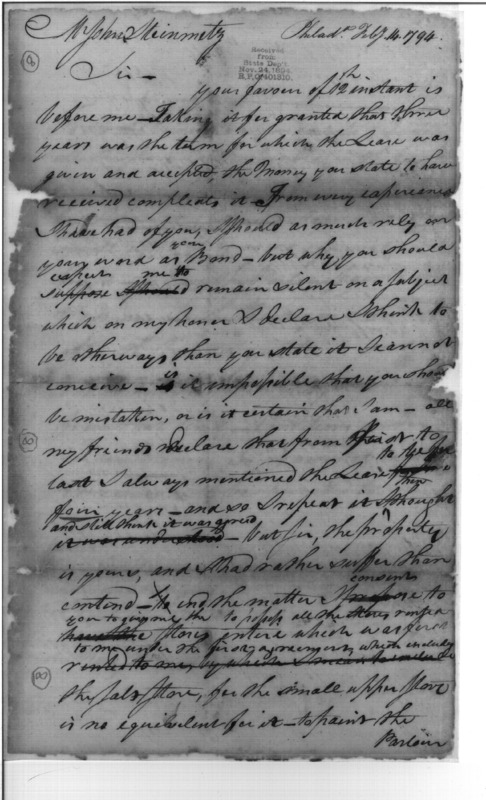 Mr John Steinmetz Philada Feby 14. 1794.
Received
from
State Dept.
Nov. 24, 1894.
Sir —
your favour of 12th instant is
before me — Taking it for granted that three
years was the term for which the Lease was
given and accepted, the Money you state to have
received compleats it — From every experience
I have had of you, I should as much rely on
your word as your Bond — but why you should
expect me to
suppose I should remain silent on a subject
which on my honor I declare I think to
be otherways than you state it I cannot
conceive — is it impossible that you should
be mistaken, or is it certain that I am — all
my friends declare that from first to
last I always mentioned the Lease to be for
four years — and so I repeat it I thought then
and still think it was agreed
it was understood — but sir, the property
is yours, and I had rather suffer than
contend — to end the matter I consent to
you to give me the to possess all the stores
have the stores entire which was first
to me under the first agreement, which
rented to me, by which I mean to
the salt store, for the small upper store
is no equivalent for it — to paint the
Parlour